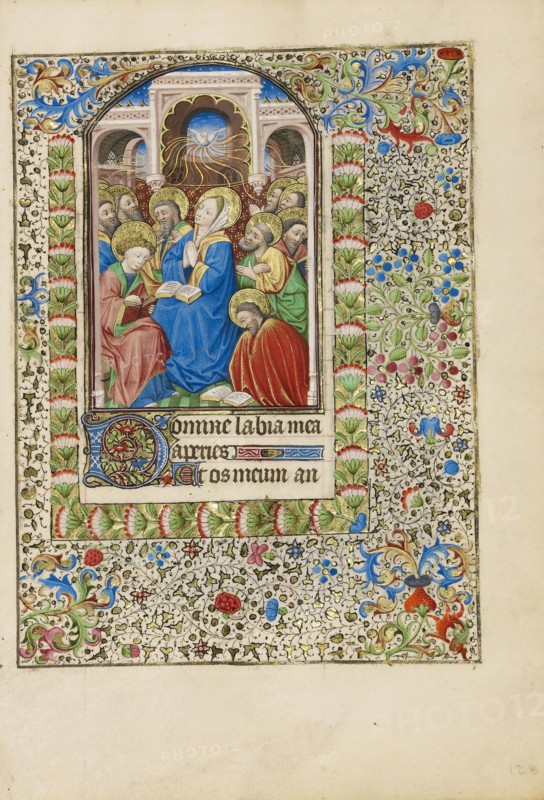 Domine labia mea
aperies
Et os meum an
128
PHOTO12